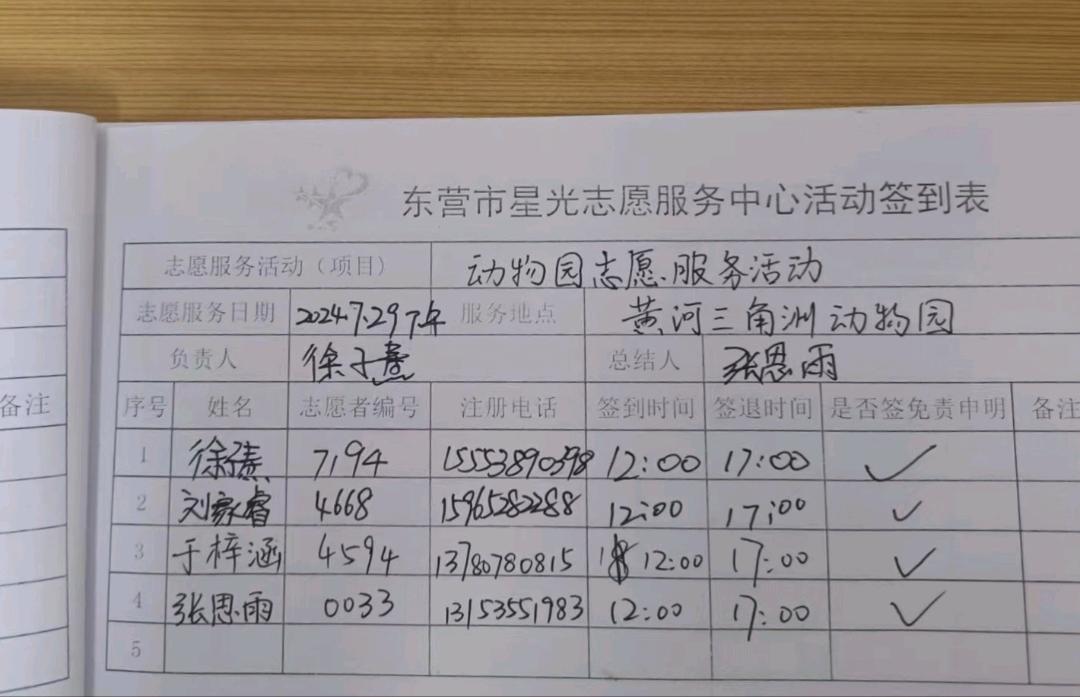 东营市星光志愿服务中心活动签到表
志愿服务活动（项目） 动物园志愿服务活动
志愿服务日期 2024.7.29下午 服务地点 黄河三角洲动物园
负责人 徐子熹 总结人 张思雨
备注 序号 姓名 志愿者编号 注册电话 签到时间 签退时间 是否签免责申明 备注
1 7194 15553890398 12:00 17:00 ✓
2 刘家睿 4668 15965282288 12:00 17:00 ✓
3 于梓涵 4594 13780780815 12:00 17:00 ✓
4 张思雨 0033 13153551983 12:00 17:00 ✓
5